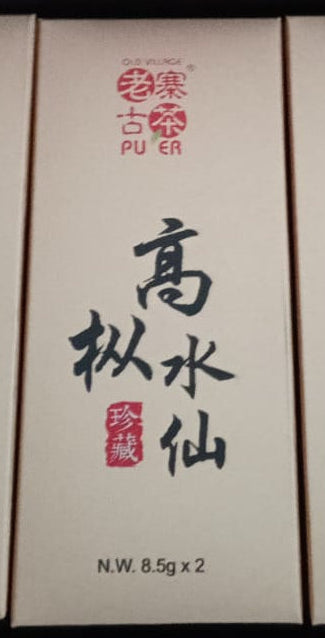 OLD VILLAGE
老寨
古茶
PU ER
高
枞水
仙
珍藏
N.W. 8.5g x 2